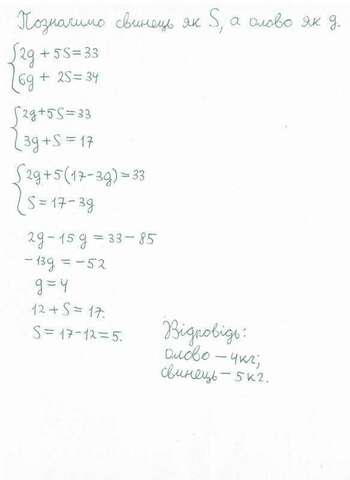 Позначимо свинець як S, а олово як g.
2g + 5S = 33
6g + 2S = 34
2g + 5S = 33
3g + S = 17
2g + 5(17 - 3g) = 33
S = 17 - 3g
2g - 15g = 33 - 85
-13g = -52
g = 4
12 + S = 17.
S = 17 - 12 = 5.
Відповідь:
олово - 4кг;
свинець - 5кг.